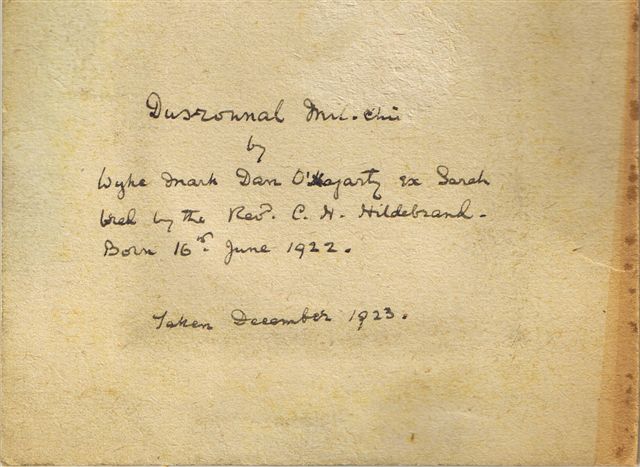 Dusronnal Mu-chu
by
Wyke Mark Dan O'Hagarty ex Sarah
bred by the Rev. C. H. Hildebrand.
Born 16th June 1922.
Taken December 1923.